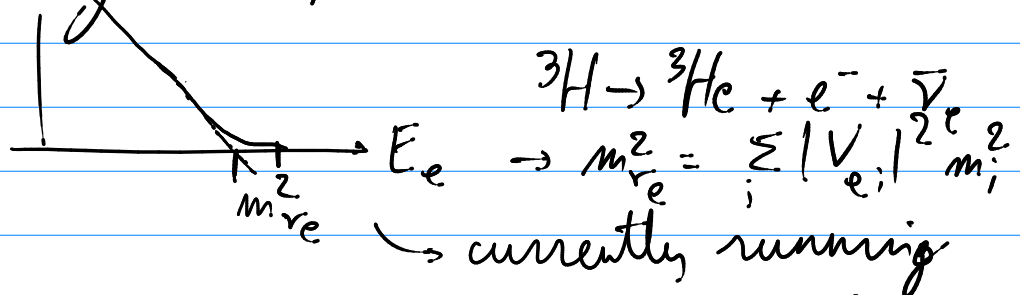 ³H → ³He + e⁻ + ν̄ₑ
Eₑ → m²_νₑ = Σ_i |V_ei|² m_i²
m²_νₑ
↳ currently running